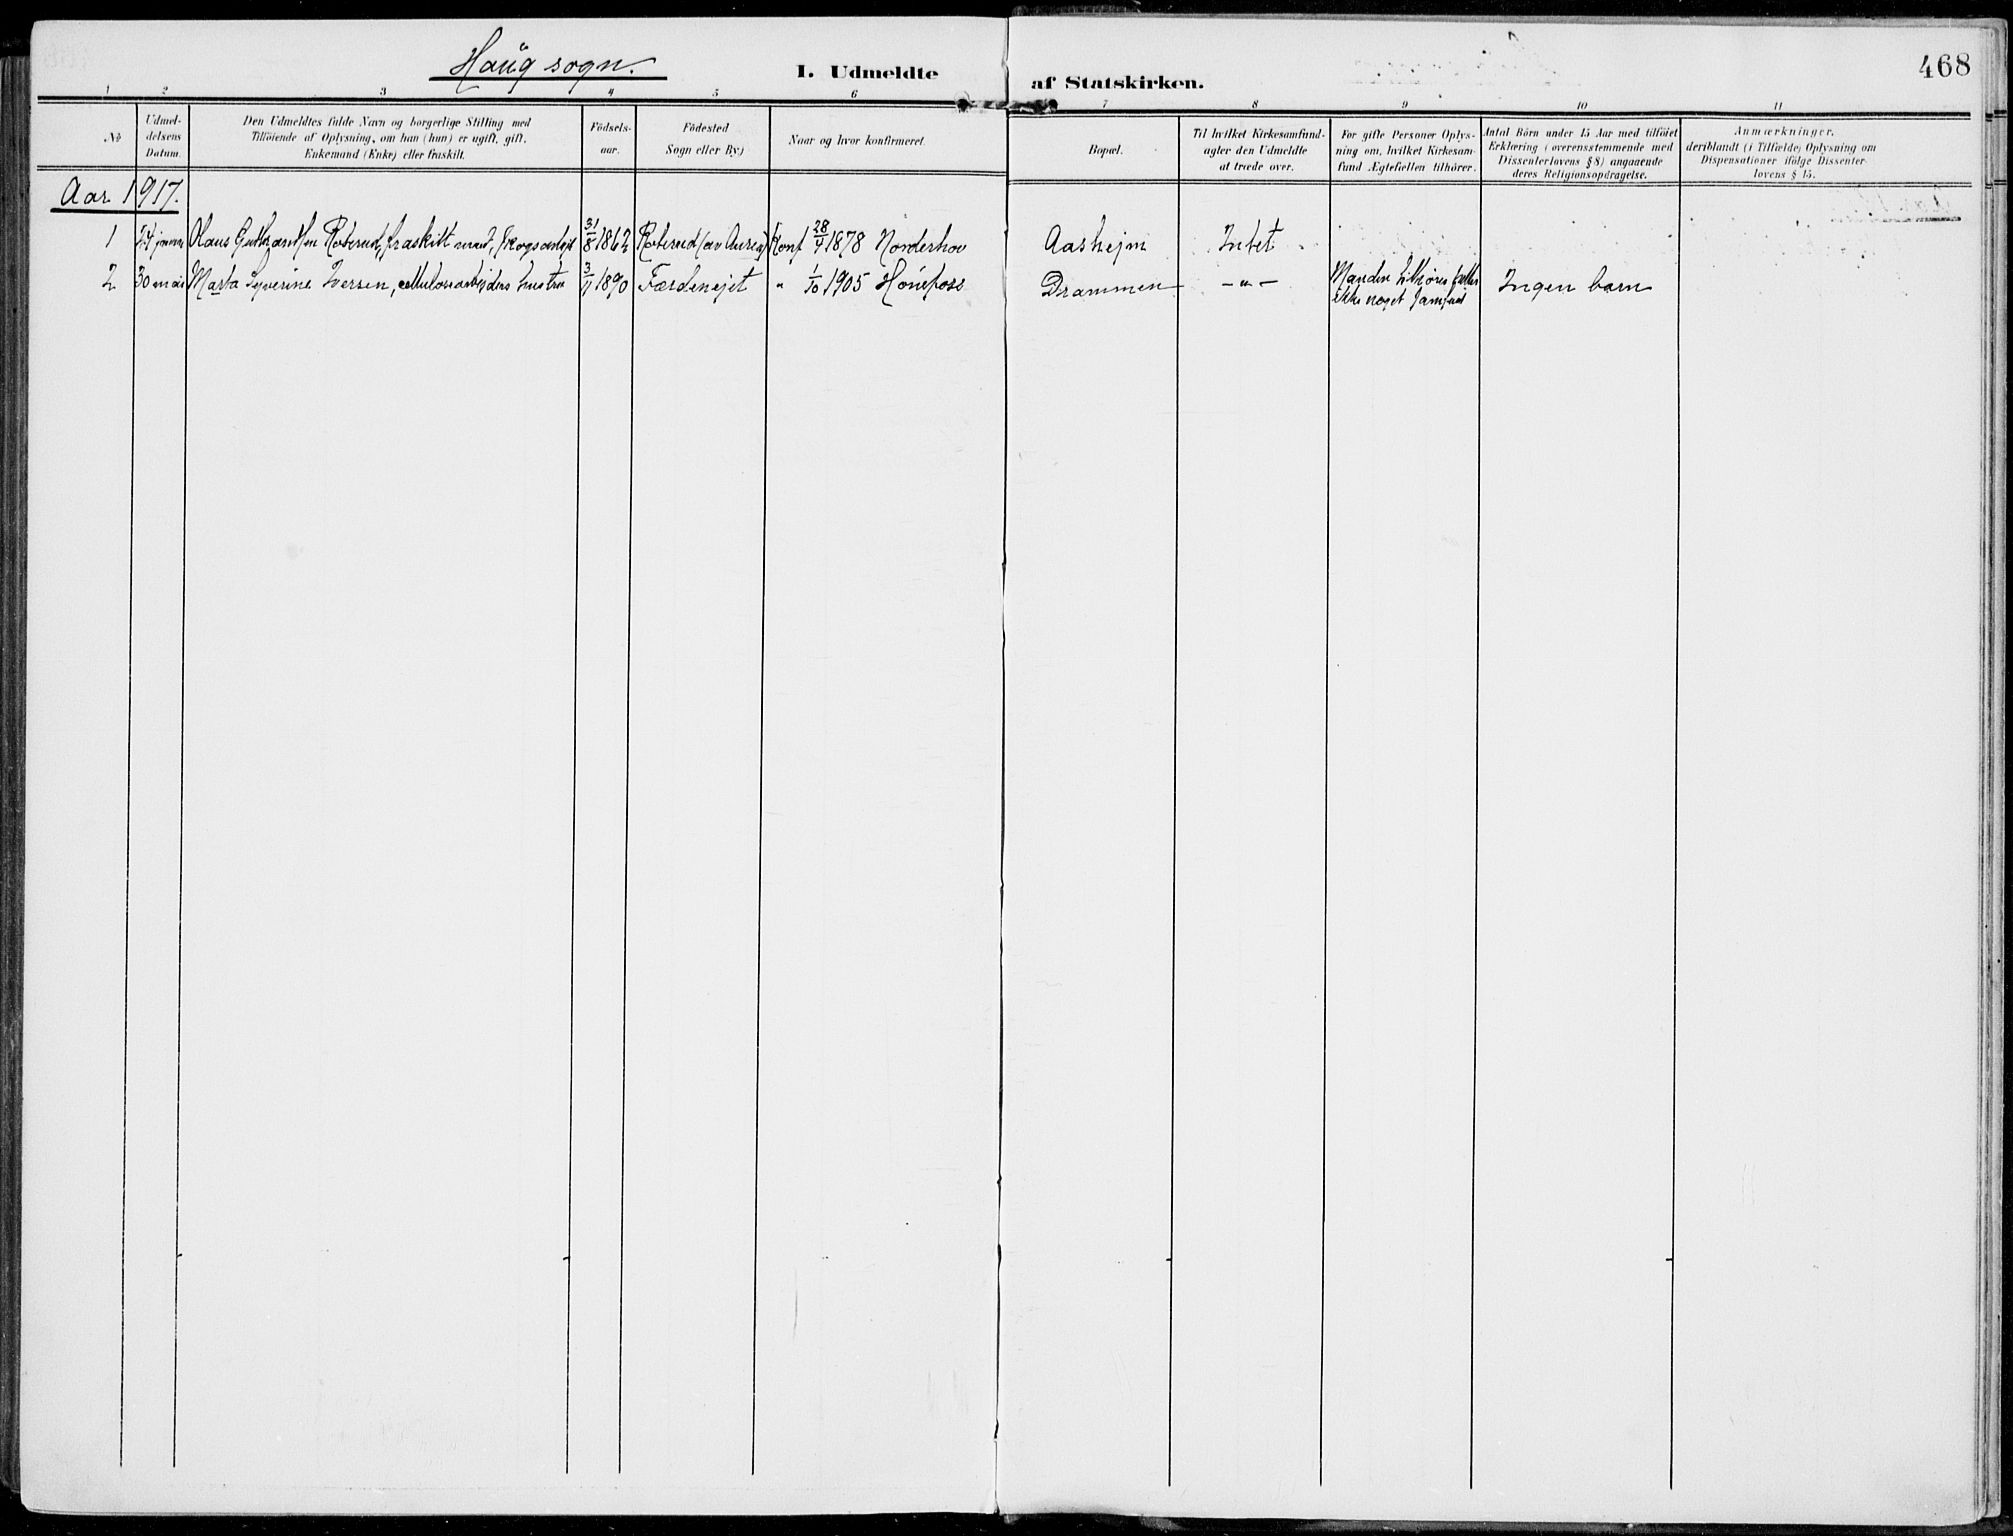 Haug sogn.
I. Udmeldte af Statskirken.
468
1 2 3 4 5 6 7 8 9 10 11
No
Udmel-
delsens
Datum.
Den Udmeldtes fulde Navn og borgerlige Stilling med
Tilföiende af Oplysning, om han (hun) er ugift, gift,
Enkemand (Enke) eller fraskilt.
Födsels-
aar.
Födested
Sogn eller By.)
Naar og hvor konfirmeret.
Bopæl.
Til hvilket Kirkesamfund-
agter den Udmeldte
at træde over.
For gifte Personer Oplys-
ning om, hvilket Kirkesam-
fund Ægtefællen tilhörer.
Antal Börn under 15 Aar med tilföiet
Erklæring (overensstemmende med
Dissenterlovens § 8) angaaende
deres Religionsopdragelse.
Anmærkninger,
deriblandt (i Tilfælde) Oplysning om
Dispensationer ifölge Dissenter-
lovens § 15.
Aar 1917.
1 24 januar Olaus Gulbrandsen Roberud, fraskilt mand, skogsarbejd 31/8 1862 Roberud (av Auren) Konf 28/4 1878 Norderhov Aashejm Intet
2 30 mai Marta Syverine Iversen, cellulosearbejders hustru 3/11 1890 Færdenejet " 1/10 1905 Hönefoss Drammen - " - Manden tilhörer heller Ingen barn
ikke noget samfund